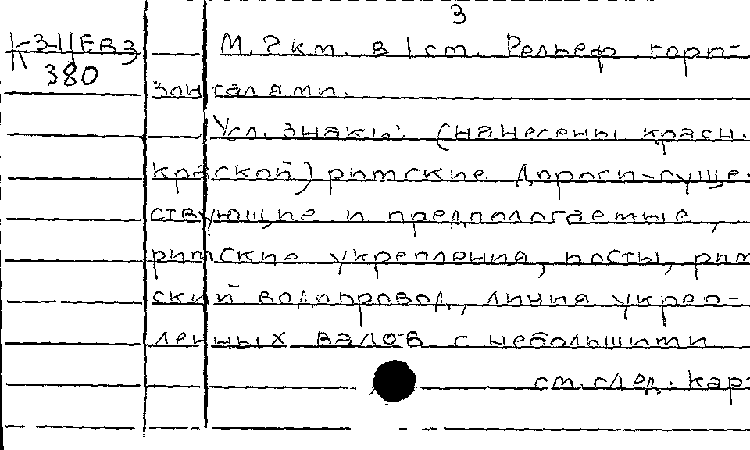 3
К-3-11/ЕВ3 М. 2 км. в 1 см. Рельеф гори-
380 зонталями.
Усл. знаки: (нанесены красн.
краской) римские дороги-суще-
ствующие и предпологаемые,
римские укрепления, посты, рим-
ский водопровод, линия укреп-
ленных валов с небольшими
см. след. кар